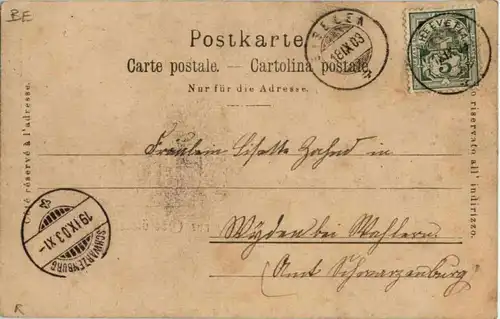 BE
Postkarte
Carte postale. — Cartolina postale
Nur für die Adresse.
18 IX 03
5
Côté réservé à l'adresse.
riservato all' indirizzo.
Fräulein Lisette Zahnd in
Wyden bei Wahlern.
(Amt Schwarzenburg)
SCHWARZENBURG
19.IX.03.XI-